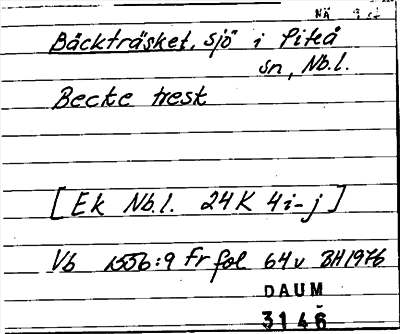 NÄ
Bäckträsket, sjö i Piteå
sn, Nb.l.
Becke tresk
[Ek Nb.l. 24K 4i-j]
Vb 1556:9 Fr fol 64v BH 1976
DAUM
3146